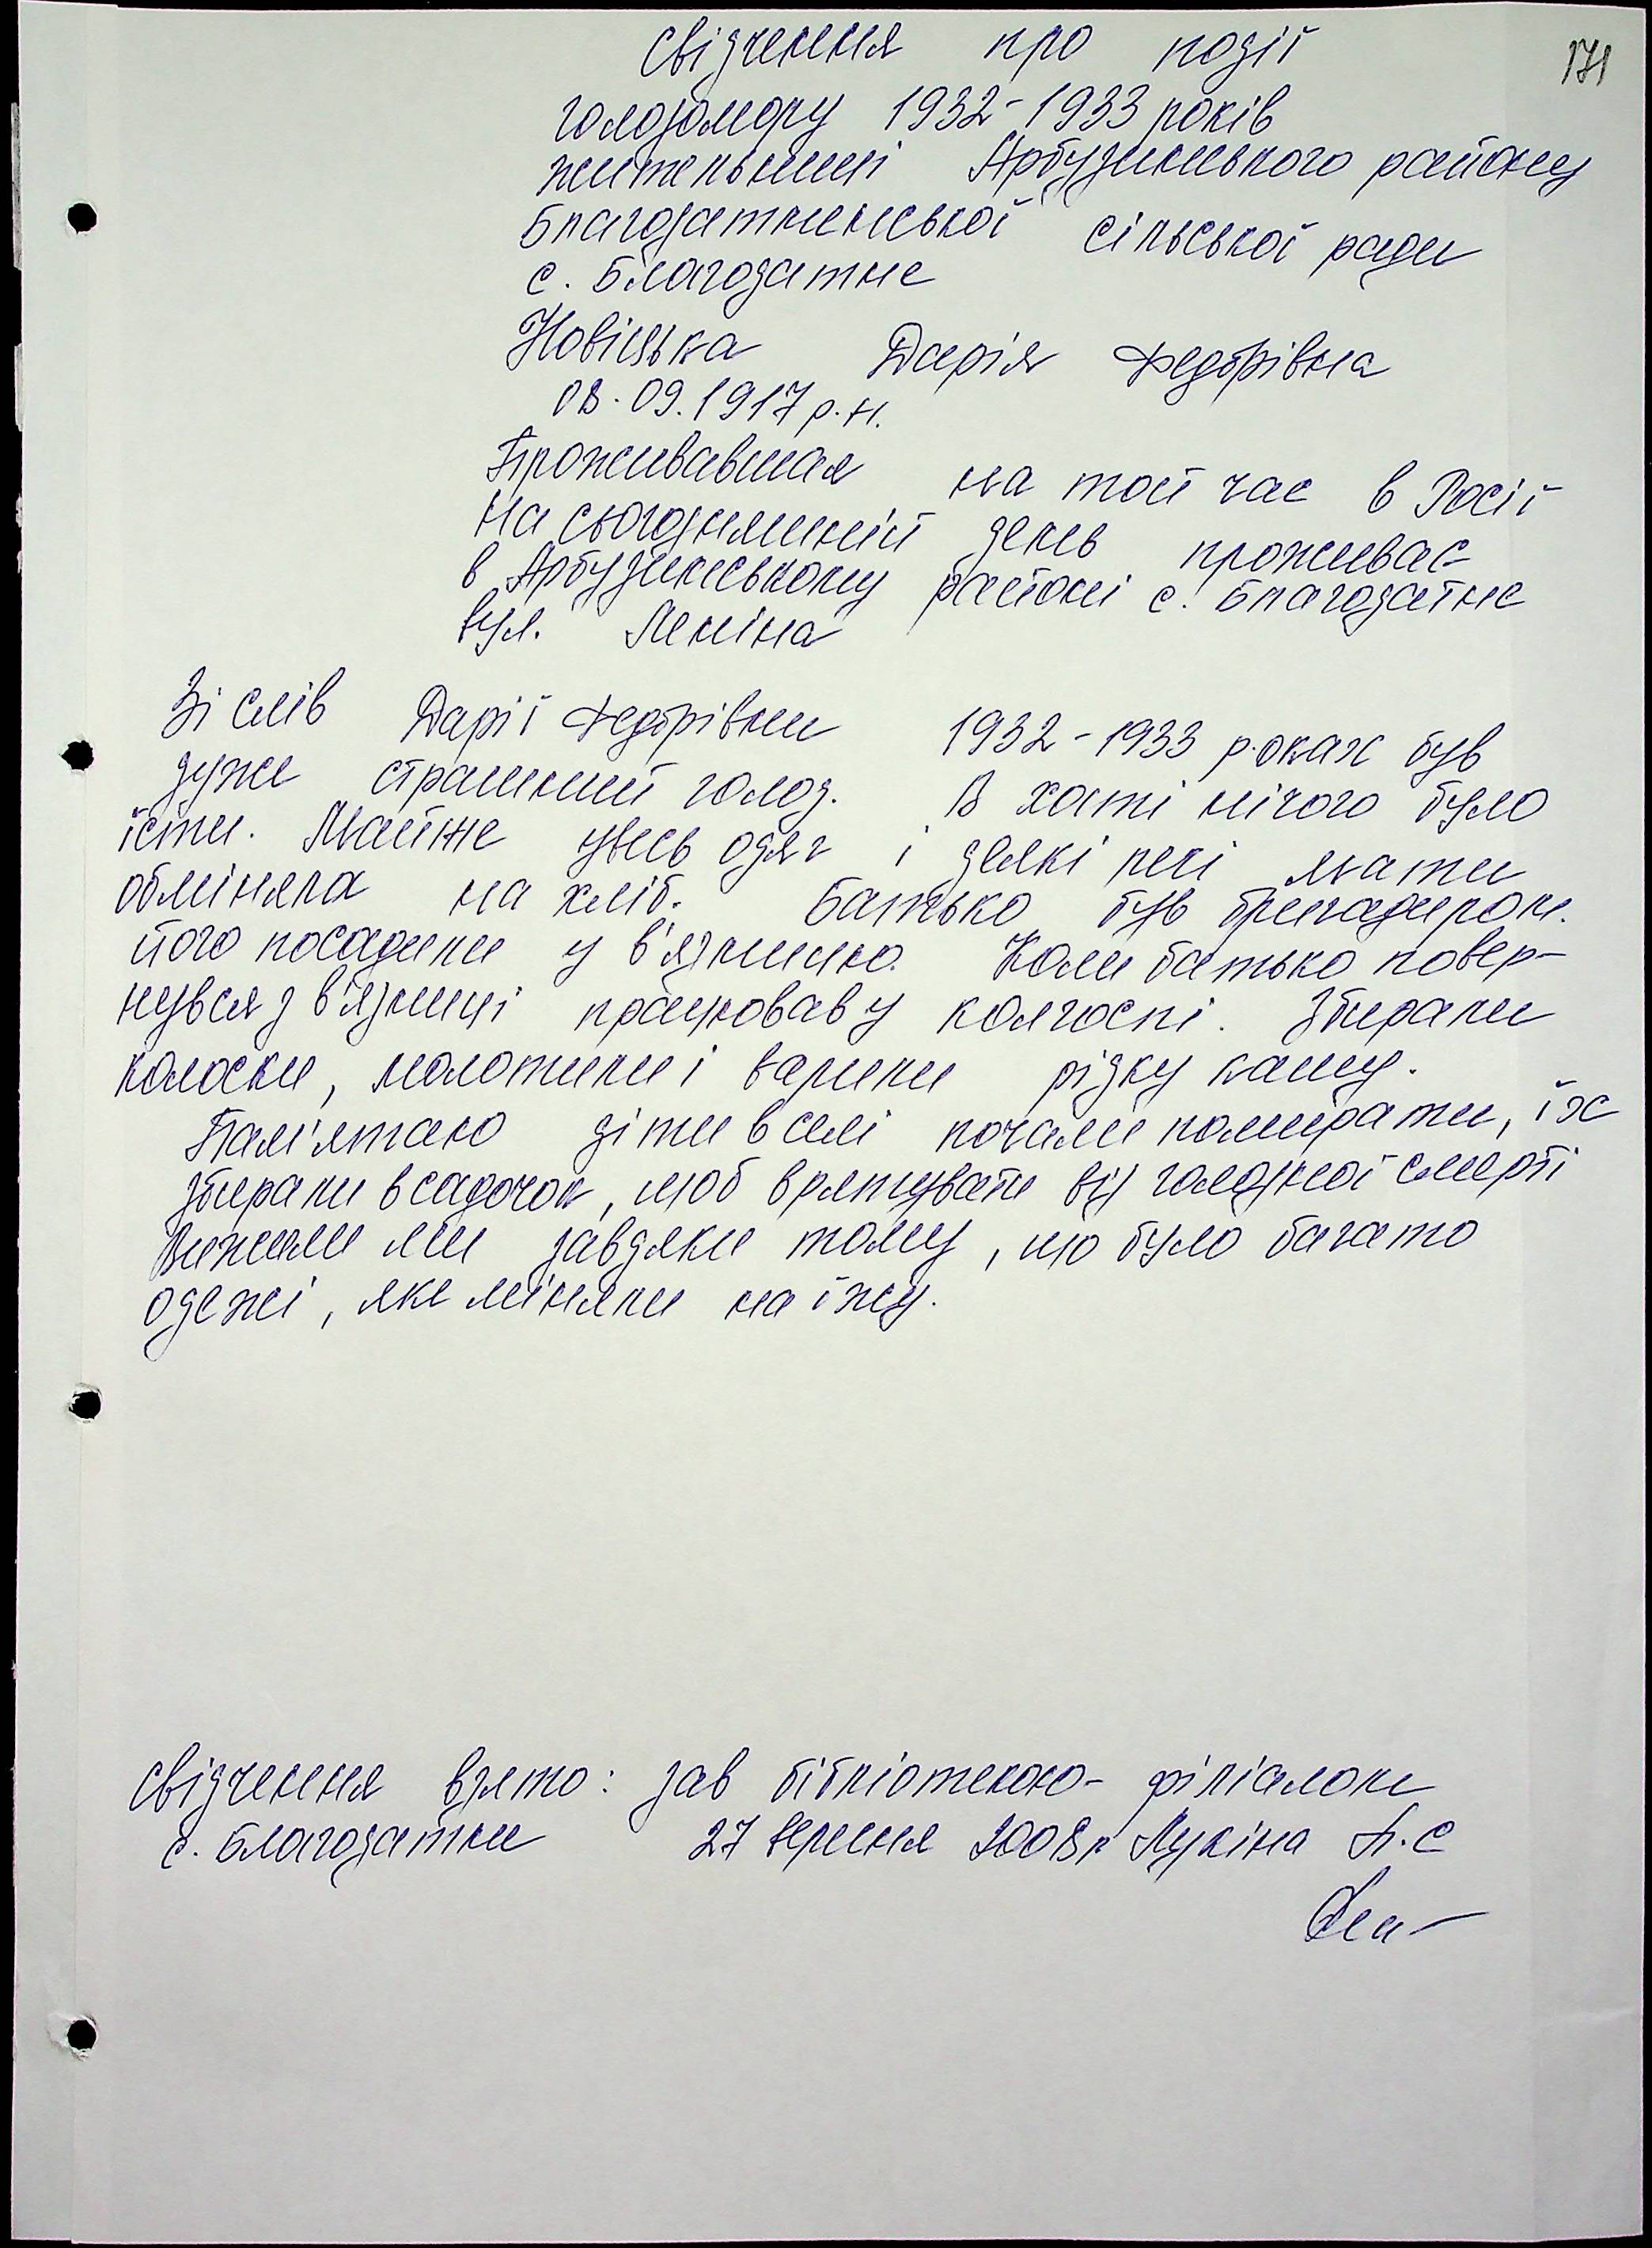 171
Свідчення про події
голодомору 1932-1933 років
жительниці Арбузинського району
Благодатненської сільської ради
с. Благодатне
Новіцька Дарія Федорівна
08.09.1917 р.н.
Проживавшая на той час в Росії
На сьогоднишній день проживає
в Арбузинському районі с. Благодатне
вул. Леніна
Зі слів Дарії Федорівни 1932-1933 роках був
дуже страшний голод. В хаті нічого було
їсти. Майже увесь одяг і деякі речі мати
обміняла на хліб. Батько був бригадиром.
Його посадили у в'язницю. Коли батько повер-
нувся з в'язниці працював у колгоспі. Збирали
колоски, молотили і варили рідку кашу.
Пам'ятаю діти в селі почали помирати, їх
збирали в садочок, щоб врятувати від голодної смерті
Вижили ми завдяки тому, що було багато
одежі, яке міняли на їжу.
Свідчення взято: зав бібліотекою-філіалом
с. Благодатне 27 вересня 2008р Лукіна Л.С